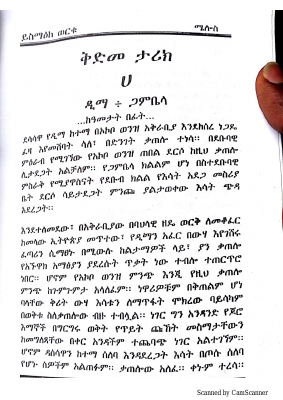 ይስማዕከ ወርቁ
ሜሎስ
ቅድመ ታሪክ
ሀ
ዲማ ÷ ጋምቤላ
...ከዓመታት በፊት...
ደሳሳዋ የዲማ ከተማ በአኮቦ ወንዝ አቅራቢያ እንደከሰረ ነጋዴ
ፈዛ እየመሸባት ሳለ፣ በድንገት ቃጠሎ ተነሣ። በደቡባዊ
ምዕራብ የሚገኘው የአኮቦ ወንዝ ጠበል ደርሶ ከዚህ ቃጠሎ
ሊታደጋት አልቻለም። የጋምቤላ ክልልም ሆነ በስተደቡባዊ
ምስራቅ የሚያዋስናት የደቡብ ክልል የእሳት አደጋ መስሪያ
ቤት ደርሶ ሳይታደጋት ምንጩ ያልታወቀው እሳት ጭዳ
አደረጋት።
እንደተለመደው፣ በአቅራቢያው በባህላዊ ዘዴ ወርቅ ለመቆፈር
ከመላው ኢትዮጵያ መጥተው፣ የዲማን አፈር በውሃ እየገሸሩ
ፈጣሪን ሲማፀኑ በሚውሉ ከልታማዎች ላይ፣ ያን ቃጠሎ
የአኙዋክ አማፅያን ያደረሱት ጥቃት ነው ተብሎ ተጠርጥሮ
ነበር። ሆኖም የአኮቦ ወንዝ ምንጭ እንጂ የዚህ ቃጠሎ
ምንጭ ከጉምጉምታ አላለፈም። ነዋሪዎቹም በቅጠልም ሆነ
ባላቸው ቅሪት ውሃ እሳቱን ለማጥፋት ሞክረው ባይሳካም
በወቅቱ ስለቃጠሎው ብዙ ተብሏል። ነገር ግን አንዳንድ የጆሮ
እማኞች በግርግሩ ወቅት የጥይት ጩኸት መስማታቸውን
ከመግለፃቸው በቀር አንዳችም ተጨባጭ ነገር አልተገኘም።
ሆኖም ዳስሳዋን ከተማ ሰለባ እንዳደረጋት እሳት በጦሱ ሰለባ
የሆኑ ሰዎችም አልጠፉም። ቃጠሎው አለፈ። ቀኑም ተረሳ።
Scanned by CamScanner